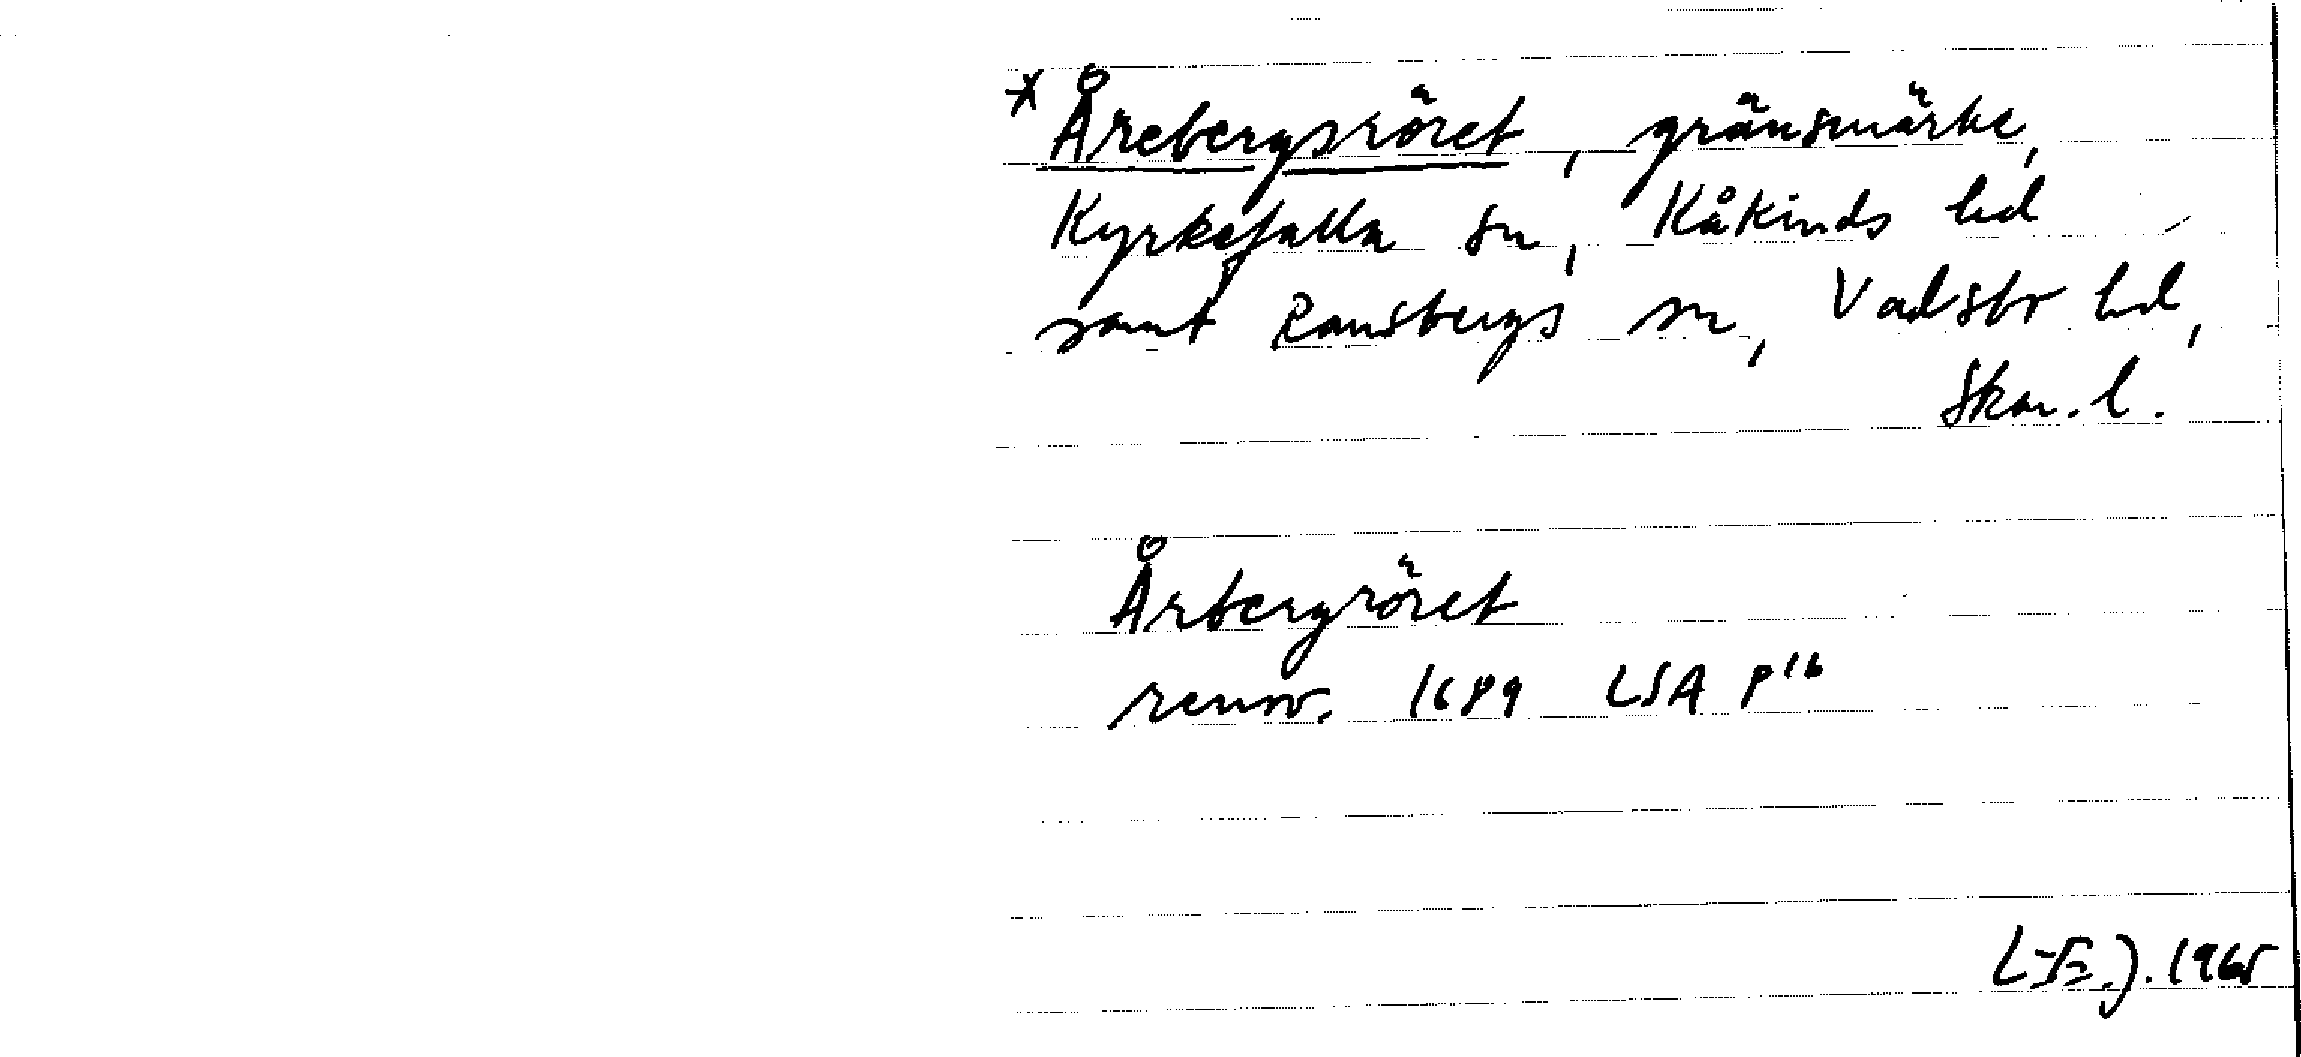 * Årebergsröret, gränsmärke,
Kyrkefalla sn, Kåkinds hd
samt Ransbergs sn, Vadsbr hd,
Skar. l.
Årbergröret
renov. 1689 LSA P16
L-E.J. 1965